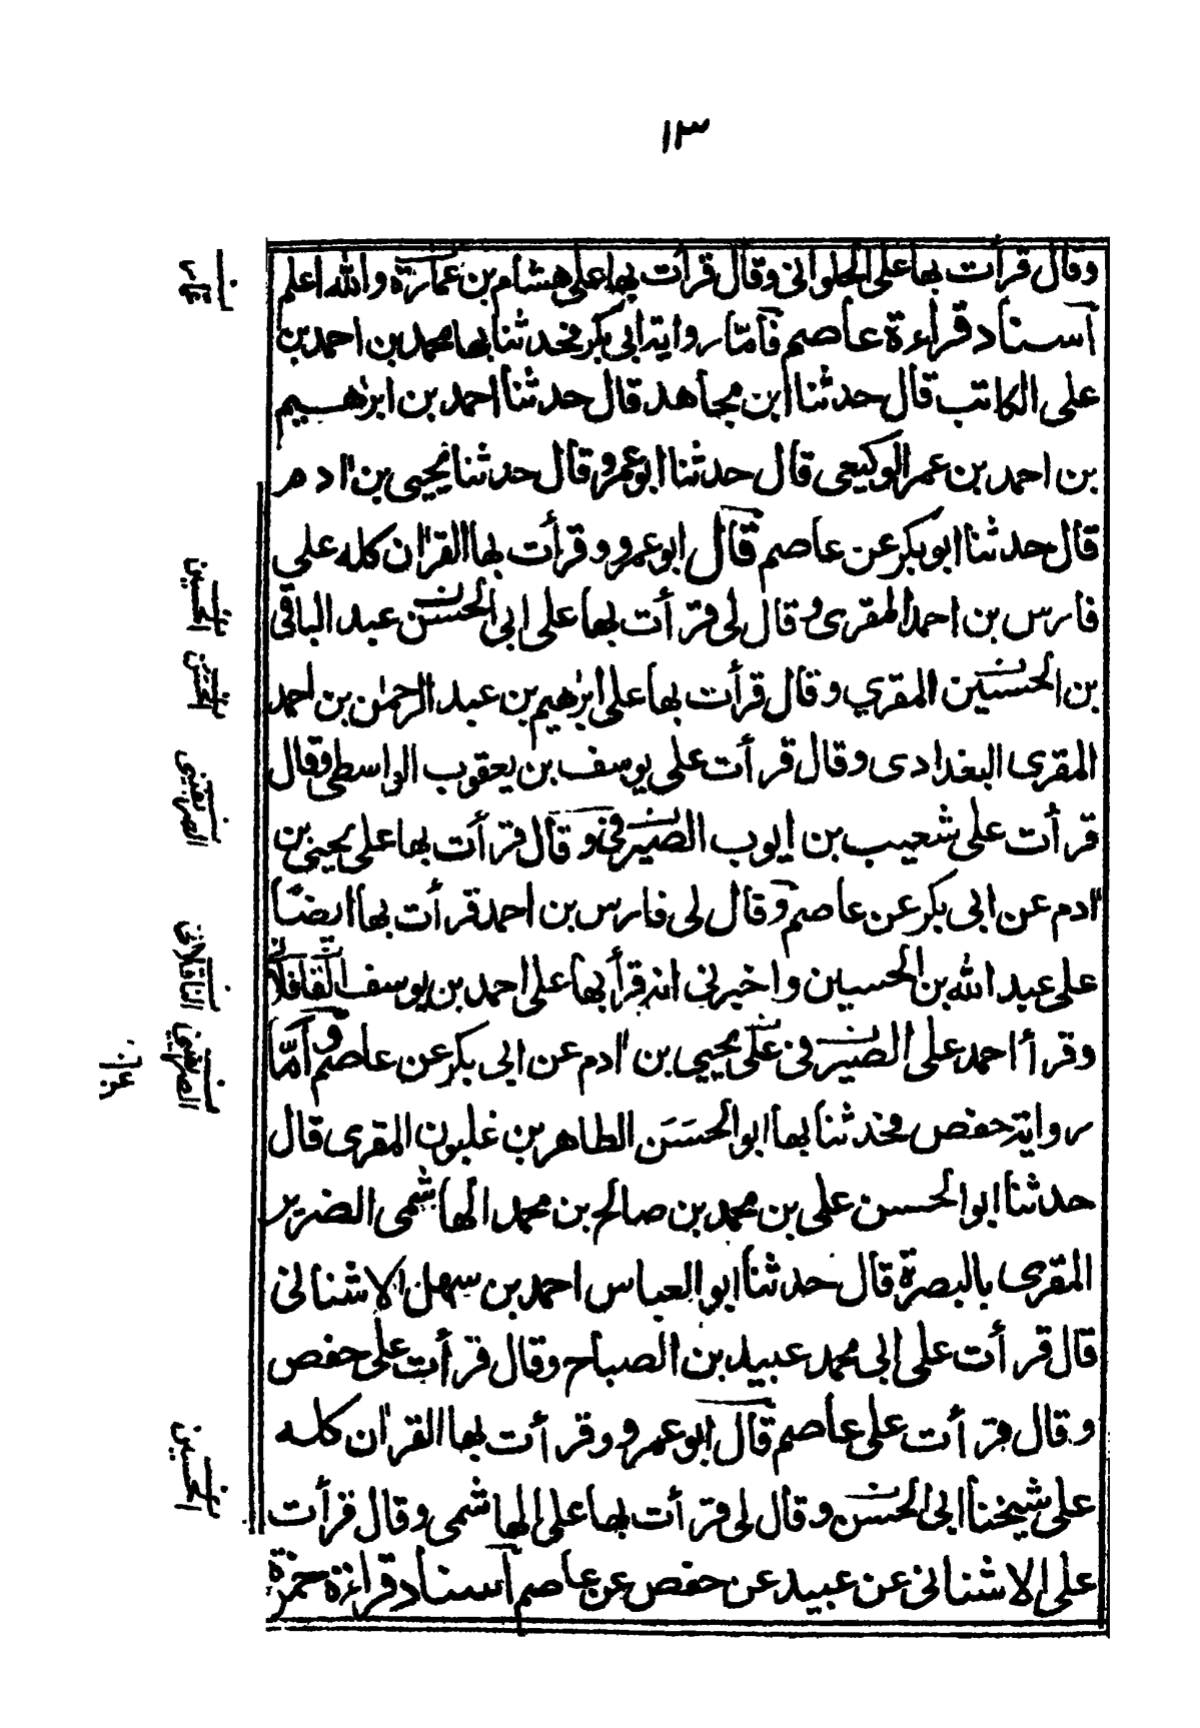 ١٣
وقال قرأت بها على الحلوانى وقال قرأت بها على هشام بن عمارة والله اعلم
اسناد قراءة عاصم فامّا رواية ابى بكر فحدثنا بها محمد بن احمد بن
على الكاتب قال حدثنا ابن مجاهد قال حدثنا احمد بن ابرٰهيم
بن احمد بن عمر الوكيعى قال حدثنا ابو عمرو قال حدثنا يحيى بن اٰدم
قال حدثنا ابو بكر عن عاصم قال ابو عمرو وقرأت بها القرٰان كله على
فارس بن احمد المقرى وقال لى قرأت بها على ابى الحسن عبد الباقى
بن الحسين المقري وقال قرأت بها على ابرٰهيم بن عبد الرحمٰن بن احمد
المقرى البغدادى وقال قرأت على يوسف بن يعقوب الواسطى وقال
قرأت على شعيب بن ايوب الصيرفى وقال قرأت بها على يحيى بن
اٰدم عن ابى بكر عن عاصم وقال لى فارس بن احمد قرأت بها ايضًا
على عبد الله بن الحسين واخبرنى انه قرأ بها على احمد بن يوسف القافلانى
وقرأ احمد على الصيرفى على يحيى بن اٰدم عن ابى بكر عن عاصم وامّا
رواية حفص فحدثنا بها ابو الحسَن الطاهر بن غلبون المقرى قال
حدثنا ابو الحسن على بن محمد بن صالح بن محمد الهاشمى الضرير
المقرى بالبصرة قال حدثنا ابو العباس احمد بن سهل الاشنانى
قال قرأت على ابى محمد عبيد بن الصباح وقال قرأت على حفص
وقال قرأت على عاصم قال ابو عمرو وقرأت بها القرٰان كله
على شيخنا ابى الحسن وقال لى قرأت بها على الهاشمى وقال قرأت
على الاشنانى عن عبيد عن حفص عن عاصم اسناد قراءة حمزة
الحسين
الحسن
الحسين